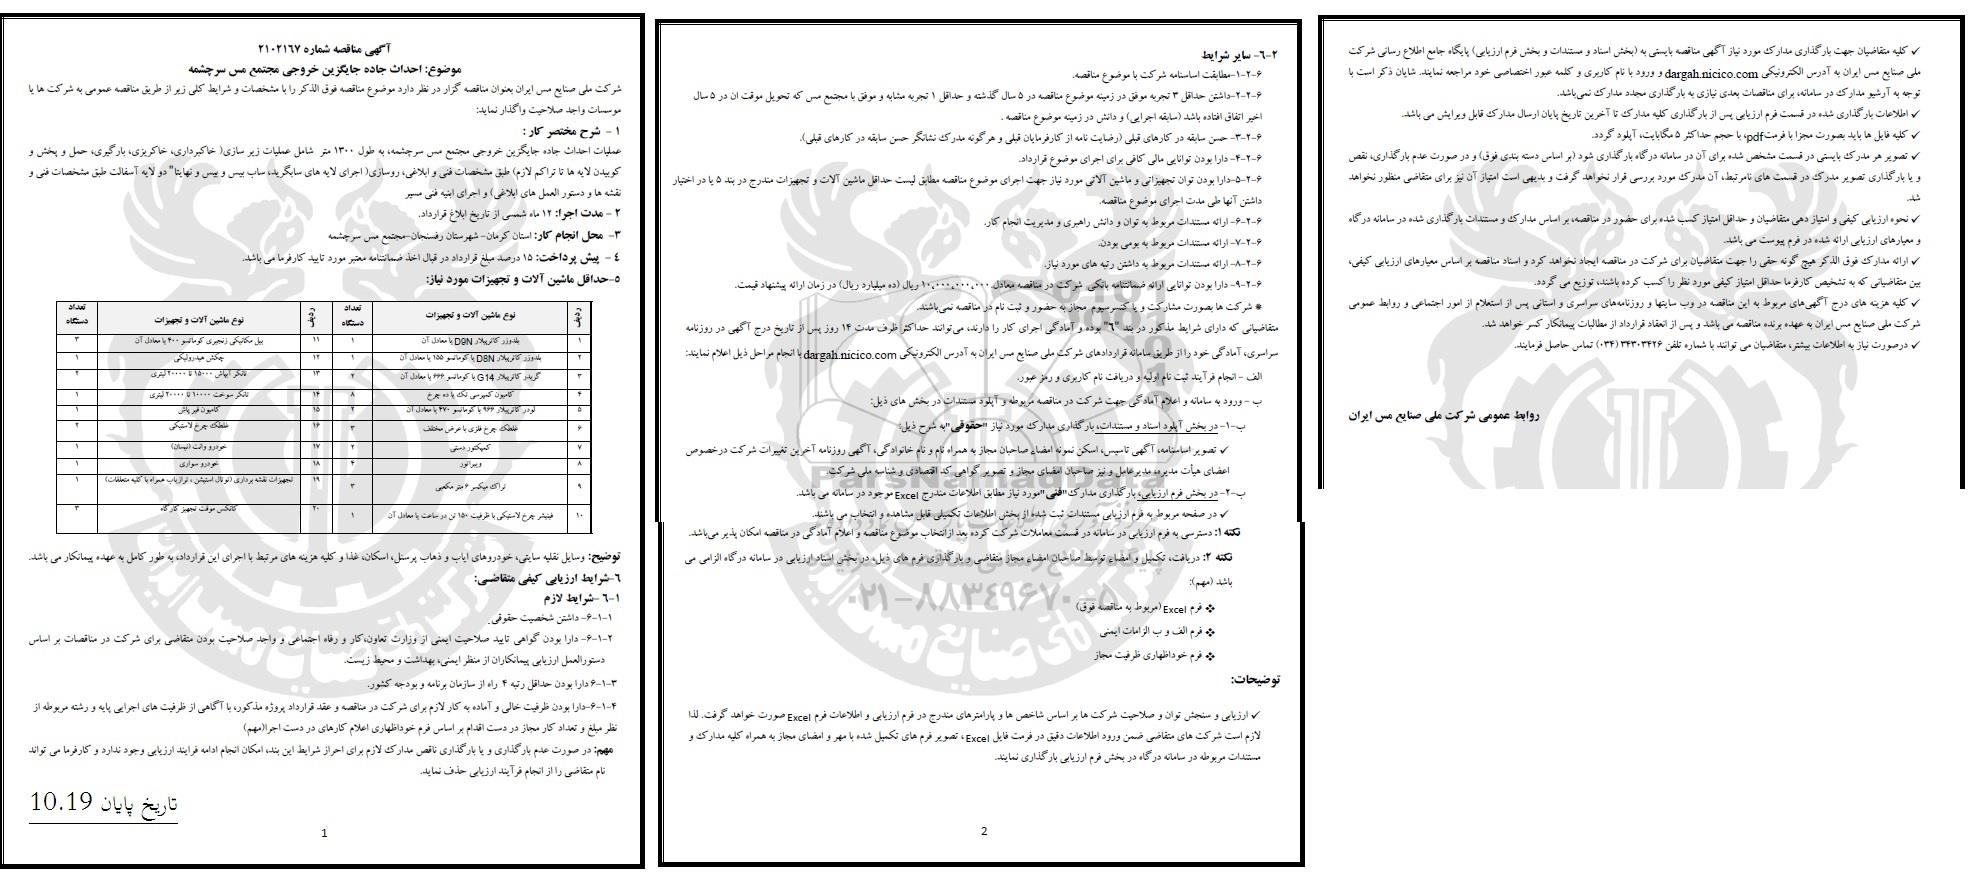 آگهی مناقصه شماره ۲۱۰۲۱۶۷
موضوع: احداث جاده جایگزین خروجی مجتمع مس سرچشمه
شرکت ملی صنایع مس ایران بعنوان مناقصه گزار در نظر دارد موضوع مناقصه فوق الذکر را با مشخصات و شرایط کلی زیر از طریق مناقصه عمومی به شرکت ها یا
موسسات واجد صلاحیت واگذار نماید:
۱ - شرح مختصر کار :
عملیات احداث جاده جایگزین خروجی مجتمع مس سرچشمه، به طول ۱۳۰۰ متر شامل عملیات زیر سازی( خاکبرداری، خاکریزی، بارگیری، حمل و پخش و
کوبیدن لایه ها تا تراکم لازم) طبق مشخصات فنی و ابلاغی، روسازی( اجرای لایه های سابگرید، ساب بیس و بیس و نهایتا" دو لایه آسفالت طبق مشخصات فنی و
نقشه ها و دستور العمل های ابلاغی) و اجرای ابنیه فنی مسیر
۲ - مدت اجرا: ۱۲ ماه شمسی از تاریخ ابلاغ قرارداد.
۳- محل انجام کار: استان کرمان- شهرستان رفسنجان-مجتمع مس سرچشمه
۴ - پیش پرداخت: ۱۵ درصد مبلغ قرارداد در قبال اخذ ضمانتنامه معتبر مورد تایید کارفرما می باشد.
۵-حداقل ماشین آلات و تجهیزات مورد نیاز:
ردیف نوع ماشین آلات و تجهیزات تعداد دستگاه ردیف نوع ماشین آلات و تجهیزات تعداد دستگاه
۱ بلدوزر کاترپیلار D9N یا معادل آن ۱ ۱۱ بیل مکانیکی زنجیری کوماتسو ۴۰۰ یا معادل آن ۳
۲ بلدوزر کاترپیلار D8N یا کوماتسو ۱۵۵ یا معادل آن ۱ ۱۲ چکش هیدرولیکی ۱
۳ گریدر کاترپیلار G14 یا کوماتسو ۶۶۶ یا معادل آن ۲ ۱۳ تانکر آبپاش ۱۵۰۰۰ تا ۲۰۰۰۰ لیتری ۲
۴ کامیون کمپرسی تک یا ده چرخ ۸ ۱۴ تانکر سوخت ۱۰۰۰۰ تا ۲۰۰۰۰ لیتری ۱
۵ لودر کاترپیلار ۹۶۶ یا کوماتسو ۴۷۰ یا معادل آن ۲ ۱۵ کامیون قیر پاش ۱
۶ غلطک چرخ فلزی با عرض مختلف ۳ ۱۶ غلطک چرخ لاستیکی ۲
۷ کمپکتور دستی ۲ ۱۷ خودرو وانت (نیسان) ۱
۸ ویبراتور ۴ ۱۸ خودرو سواری ۱
۹ تراک میکسر ۶ متر مکعبی ۳ ۱۹ تجهیزات نقشه برداری (توتال استیشن ، ترازیاب همراه با کلیه متعلقات) ۱
۱۰ فینیشر چرخ لاستیکی با ظرفیت ۱۵۰ تن در ساعت یا معادل آن ۱ ۲۰ کانکس موقت تجهیز کارگاه ۳
توضیح: وسایل نقلیه سایتی، خودروهای ایاب و ذهاب پرسنل، اسکان، غذا و کلیه هزینه های مرتبط با اجرای این قرارداد، به طور کامل به عهده پیمانکار می باشد.
۶-شرایط ارزیابی کیفی متقاضی:
۶-۱ -شرایط لازم
۶-۱-۱- داشتن شخصیت حقوقی.
۶-۱-۲- دارا بودن گواهی تایید صلاحیت ایمنی از وزارت تعاون،کار و رفاه اجتماعی و واجد صلاحیت بودن متقاضی برای شرکت در مناقصات بر اساس
دستورالعمل ارزیابی پیمانکاران از منظر ایمنی، بهداشت و محیط زیست.
۶-۱-۳ دارا بودن حداقل رتبه ۴ راه از سازمان برنامه و بودجه کشور.
۶-۱-۴-دارا بودن ظرفیت خالی و آماده به کار لازم برای شرکت در مناقصه و عقد قرارداد پروژه مذکور، با آگاهی از ظرفیت های اجرایی پایه و رشته مربوطه از
نظر مبلغ و تعداد کار مجاز در دست اقدام بر اساس فرم خوداظهاری اعلام کارهای در دست اجرا(مهم)
مهم: در صورت عدم بارگذاری و یا بارگذاری ناقص مدارک لازم برای احراز شرایط این بند، امکان انجام ادامه فرایند ارزیابی وجود ندارد و کارفرما می تواند
نام متقاضی را از انجام فرآیند ارزیابی حذف نماید.
تاریخ پایان 10.19
1
۶-۲- سایر شرایط
۶-۲-۱-مطابقت اساسنامه شرکت با موضوع مناقصه.
۶-۲-۲-داشتن حداقل ۳ تجربه موفق در زمینه موضوع مناقصه در ۵ سال گذشته و حداقل ۱ تجربه مشابه و موفق با مجتمع مس که تحویل موقت ان در ۵ سال
اخیر اتفاق افتاده باشد (سابقه اجرایی) و دانش در زمینه موضوع مناقصه .
۶-۲-۳- حسن سابقه در کارهای قبلی (رضایت نامه از کارفرمایان قبلی و هرگونه مدرک نشانگر حسن سابقه در کارهای قبلی).
۶-۲-۴- دارا بودن توانایی مالی کافی برای اجرای موضوع قرارداد.
۶-۲-۵-دارا بودن توان تجهیزاتی و ماشین آلاتی مورد نیاز جهت اجرای موضوع مناقصه مطابق لیست حداقل ماشین آلات و تجهیزات مندرج در بند ۵ یا در اختیار
داشتن آنها طی مدت اجرای موضوع مناقصه.
۶-۲-۶- ارائه مستندات مربوط به توان و دانش راهبری و مدیریت انجام کار.
۶-۲-۷- ارائه مستندات مربوط به بومی بودن.
۶-۲-۸- ارائه مستندات مربوط به داشتن رتبه های مورد نیاز.
۶-۲-۹- دارا بودن توانایی ارائه ضمانتنامه بانکی شرکت در مناقصه معادل ۱۰،۰۰۰،۰۰۰،۰۰۰ ریال (ده میلیارد ریال) در زمان ارائه پیشنهاد قیمت.
* شرکت ها بصورت مشارکت و یا کنسرسیوم مجاز به حضور و ثبت نام در مناقصه نمی‌باشند.
متقاضیانی که دارای شرایط مذکور در بند "۶" بوده و آمادگی اجرای کار را دارند، می‌توانند حداکثر ظرف مدت ۱۴ روز پس از تاریخ درج آگهی در روزنامه
سراسری، آمادگی خود را از طریق سامانه قراردادهای شرکت ملی صنایع مس ایران به آدرس الکترونیکی dargah.nicico.com با انجام مراحل ذیل اعلام نمایند:
الف - انجام فرآیند ثبت نام اولیه و دریافت نام کاربری و رمز عبور.
ب - ورود به سامانه و اعلام آمادگی جهت شرکت در مناقصه مربوطه و آپلود مستندات در بخش های ذیل:
ب-۱- در بخش آپلود اسناد و مستندات، بارگذاری مدارک مورد نیاز "حقوقی" به شرح ذیل:
✓ تصویر اساسنامه، آگهی تاسیس، اسکن نمونه امضای صاحبان مجاز به همراه نام و نام خانوادگی، آگهی روزنامه آخرین تغییرات شرکت درخصوص
اعضای هیأت مدیره، مدیرعامل و نیز صاحبان امضای مجاز و تصویر گواهی کد اقتصادی و شناسه ملی شرکت.
ب-۲- در بخش فرم ارزیابی، بارگذاری مدارک "فنی" مورد نیاز مطابق اطلاعات مندرج Excel موجود در سامانه می باشد.
✓ در صفحه مربوط به فرم ارزیابی مستندات ثبت شده از بخش اطلاعات تکمیلی قابل مشاهده و انتخاب می باشند.
نکته ۱: دسترسی به فرم ارزیابی در سامانه در قسمت معاملات شرکت کرده بعد ازانتخاب موضوع مناقصه و اعلام آمادگی در مناقصه امکان پذیر می‌باشد.
نکته ۲: دریافت، تکمیل و امضاء توسط صاحبان امضاء مجاز متقاضی و بارگذاری فرم های ذیل، در بخش اسناد ارزیابی در سامانه درگاه الزامی می
باشد (مهم):
❖ فرم Excel (مربوط به مناقصه فوق)
❖ فرم الف و ب الزامات ایمنی
❖ فرم خوداظهاری ظرفیت مجاز
توضیحات:
✓ ارزیابی و سنجش توان و صلاحیت شرکت ها بر اساس شاخص ها و پارامترهای مندرج در فرم ارزیابی و اطلاعات فرم Excel صورت خواهد گرفت. لذا
لازم است شرکت های متقاضی ضمن ورود اطلاعات دقیق در فرمت فایل Excel ، تصویر فرم های تکمیل شده با مهر و امضای مجاز به همراه کلیه مدارک و
مستندات مربوطه در سامانه درگاه در بخش فرم ارزیابی بارگذاری نمایند.
ParsNamadData
۰۲۱-۸۸۳۴۹۶۷۰-۵
2
✓ کلیه متقاضیان جهت بارگذاری مدارک مورد نیاز آگهی مناقصه بایستی به (بخش اسناد و مستندات و بخش فرم ارزیابی) پایگاه جامع اطلاع رسانی شرکت
ملی صنایع مس ایران به آدرس الکترونیکی dargah.nicico.com و ورود با نام کاربری و کلمه عبور اختصاصی خود مراجعه نمایند. شایان ذکر است با
توجه به آرشیو مدارک در سامانه، برای مناقصات بعدی نیازی به بارگذاری مجدد مدارک نمی‌باشد.
✓ اطلاعات بارگذاری شده در قسمت فرم ارزیابی پس از بارگذاری کلیه مدارک تا آخرین تاریخ پایان ارسال مدارک قابل ویرایش می باشد.
✓ کلیه فایل ها باید بصورت مجزا با فرمت pdf، با حجم حداکثر ۵ مگابایت، آپلود گردد.
✓ تصویر هر مدرک بایستی در قسمت مشخص شده برای آن در سامانه درگاه بارگذاری شود (بر اساس دسته بندی فوق) و در صورت عدم بارگذاری، نقص
و یا بارگذاری تصویر مدرک در قسمت های نامرتبط، آن مدرک مورد بررسی قرار نخواهد گرفت و بدیهی است امتیاز آن نیز برای متقاضی منظور نخواهد
شد.
✓ نحوه ارزیابی کیفی و امتیاز دهی متقاضیان و حداقل امتیاز کسب شده برای حضور در مناقصه، بر اساس مدارک و مستندات بارگذاری شده در سامانه درگاه
و معیارهای ارزیابی ارائه شده در فرم پیوست می باشد.
✓ ارائه مدارک فوق الذکر هیچ گونه حقی را جهت متقاضیان برای شرکت در مناقصه ایجاد نخواهد کرد و اسناد مناقصه بر اساس معیارهای ارزیابی کیفی،
بین متقاضیانی که به تشخیص کارفرما حداقل امتیاز کیفی مورد نظر را کسب کرده باشند، توزیع می گردد.
✓ کلیه هزینه های درج آگهی‌های مربوط به این مناقصه در وب سایتها و روزنامه‌های سراسری و استانی پس از استعلام از امور اجتماعی و روابط عمومی
شرکت ملی صنایع مس ایران به عهده برنده مناقصه می باشد و پس از انعقاد قرارداد از مطالبات پیمانکار کسر خواهد شد.
✓ درصورت نیاز به اطلاعات بیشتر، متقاضیان می توانند با شماره تلفن ۳۴۳۰۳۴۲۶ (۰۳۴) تماس حاصل فرمایند.
روابط عمومی شرکت ملی صنایع مس ایران